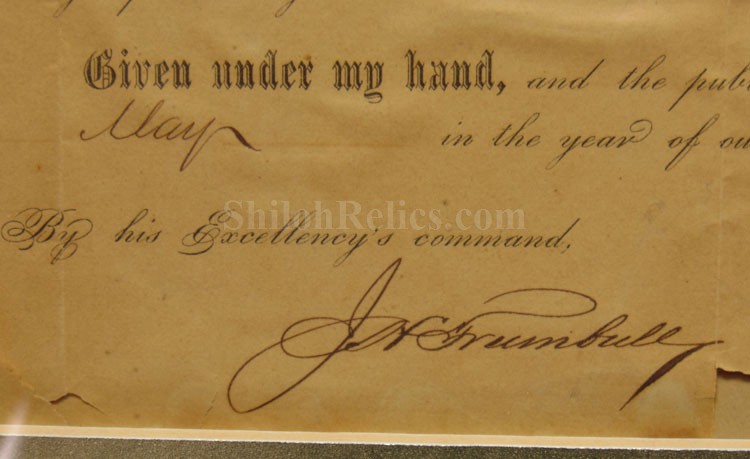 Given under my hand, and the pub
May in the year of ou
ShilohRelics.com
By his Excellency's command,
J H Trumbull